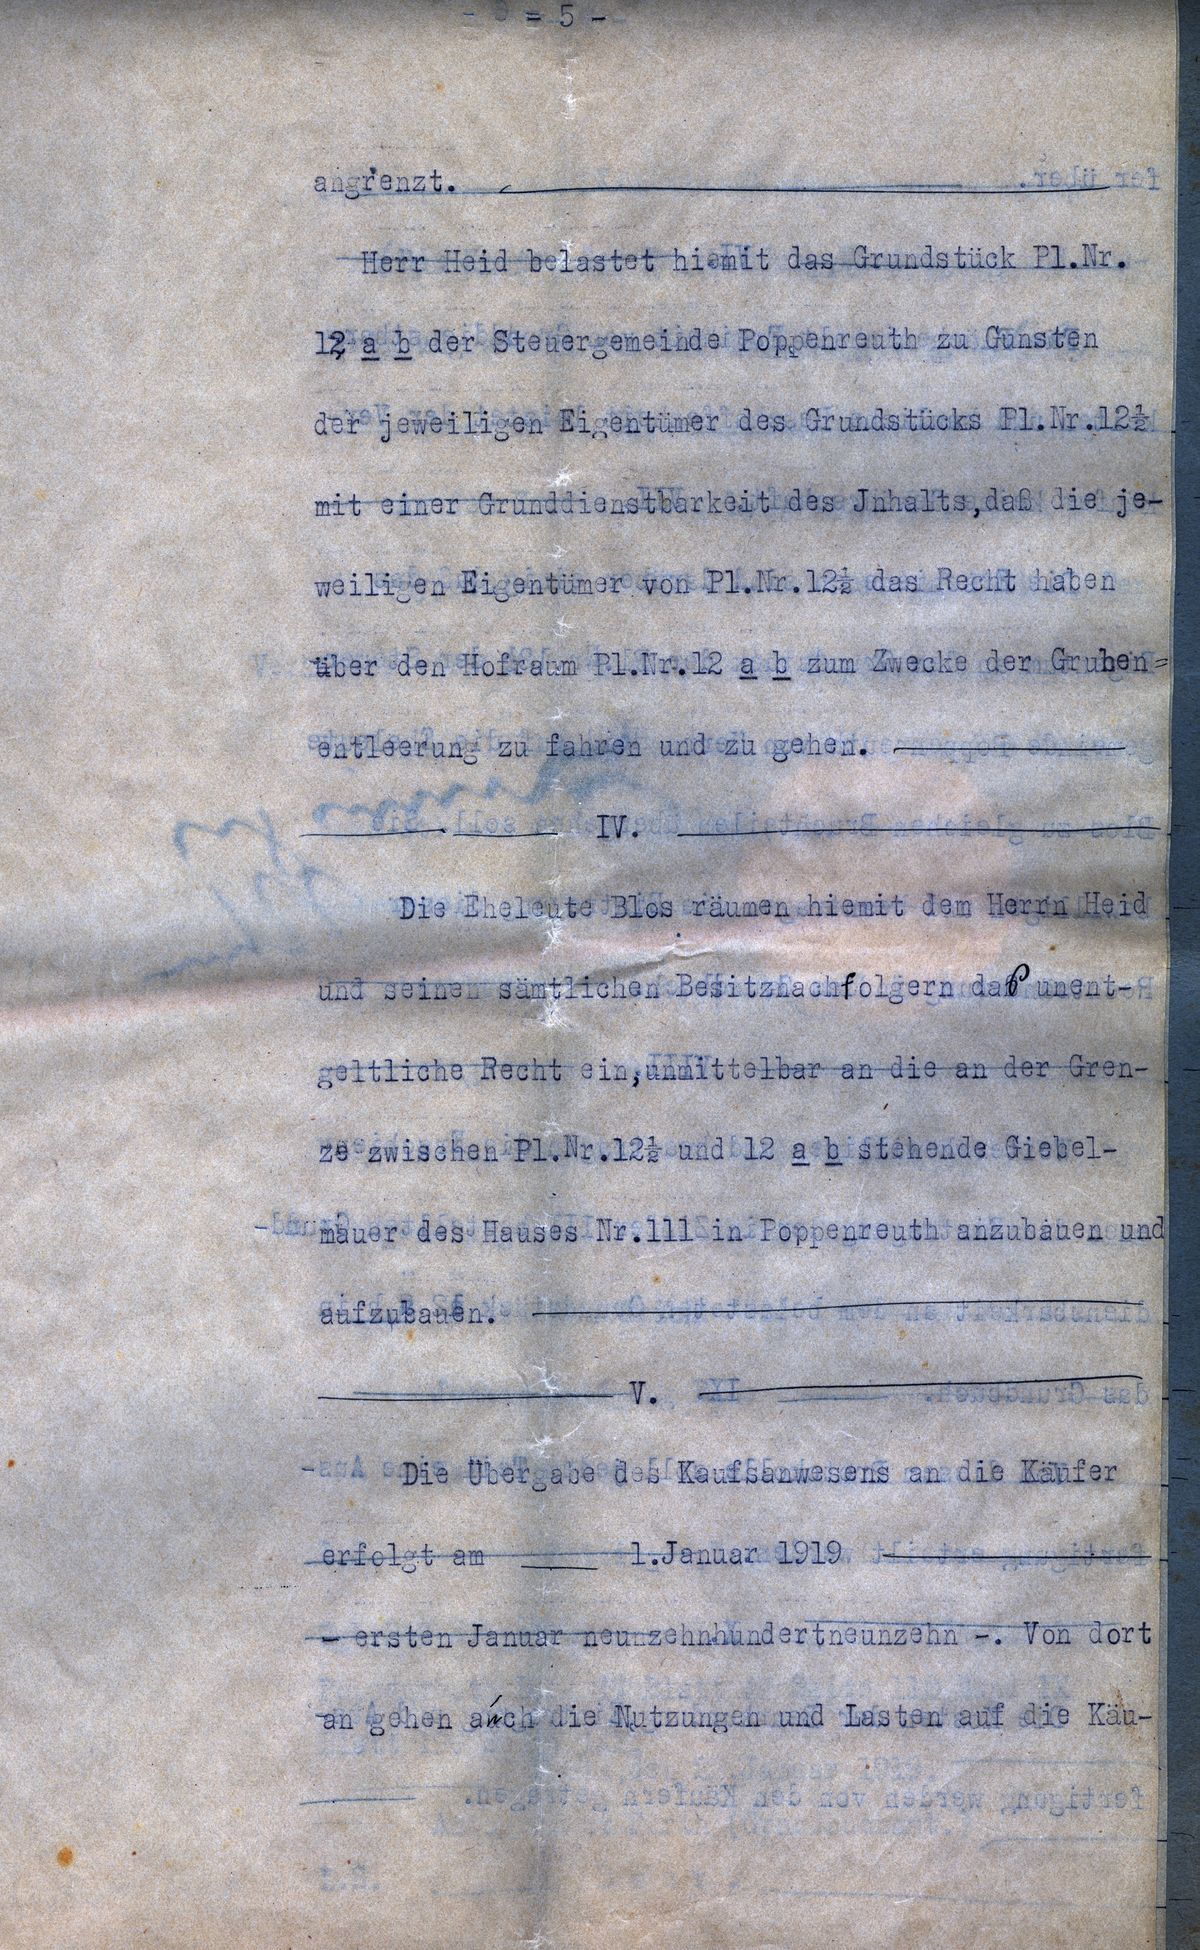 - 5 -
angrenzt.
Herr Heid belastet hiemit das Grundstück Pl.Nr.
12 a b der Steuergemeinde Poppenreuth zu Gunsten
der jeweiligen Eigentümer des Grundstücks Pl.Nr.12½
mit einer Grunddienstbarkeit des Jnhalts,daß die je-
weiligen Eigentümer von Pl.Nr.12½ das Recht haben
über den Hofraum Pl.Nr.12 a b zum Zwecke der Gruben=
entleerung zu fahren und zu gehen.
IV.
Die Eheleute Blos räumen hiemit dem Herrn Heid
und seinen sämtlichen Besitznachfolgern daß unent-
geltliche Recht ein,unmittelbar an die an der Gren-
ze zwischen Pl.Nr.12½ und 12 a b stehende Giebel-
mauer des Hauses Nr.111 in Poppenreuth anzubauen und
aufzubauen.
V.
Die Übergabe des Kaufsanwesens an die Käufer
erfolgt am 1.Januar 1919
- ersten Januar neunzehnhundertneunzehn -. Von dort
an gehen auch die Nutzungen und Lasten auf die Käu-